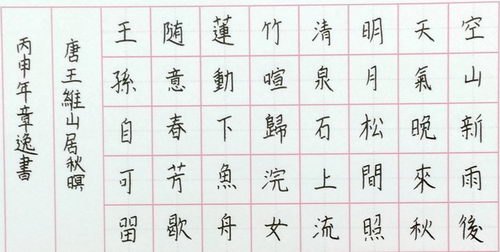 空山新雨後
天氣晚來秋
明月松間照
清泉石上流
竹暄歸浣女
蓮動下魚舟
随意春芳歇
王孫自可留
唐王維山居秋暝
丙申年章逸書